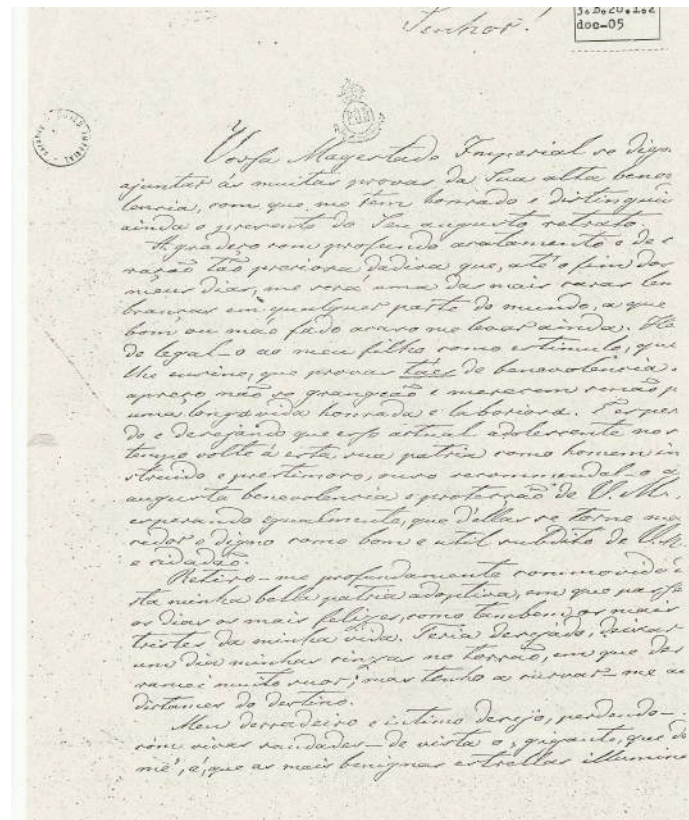 J.B.20.1.2
doc-05
Senhor!
P.O.B.
Vossa Magestade Imperial se dign
ajuntar ás muitas provas da Sua alta bene
lencia, com que me tem honrado e distingui
ainda o presente do Seu augusto retrato.
Agradeço com profundo acatamento e de c
ração tão preciosa dadiva que, até o fim dos
meus dias, me será uma das mais caras lem
branças em qualquer parte do mundo, a que
bom ou máo fado acaso me levar ainda. He
de legal-o ao meu filho como estimulo, que
lhe ensine, que provas táes de benevolencia
apreço não se grangeão e merecem senão p
uma longa vida honrada e laboriosa. Esper
do e desejando que esse actual adolescente nos
tempo volte á esta sua patria como homem in
struido e prestimoso, ouso recommendal-o a
augusta benevolencia e protecção de V. M.,
esperando egualmente, que d'ellas se torne me
cedor e digno como bom e util subdito de V. M.
e cidadão.
Retiro-me profundamente commovido d
sta minha bella patria adoptiva, em que passe
os dias os mais felizes, como tambem os mais
tristes da minha vida. Teria desejado, deixar
um dia minhas cinzas no torrão, em que der
ramei muito suor; mas tenho a curvar-me ao
dictames do destino.
Meu derradeiro e intimo desejo, perdendo-
com vivas saudades-de vista o "gigante, que do
me", é, que as mais benignas estrellas illumine